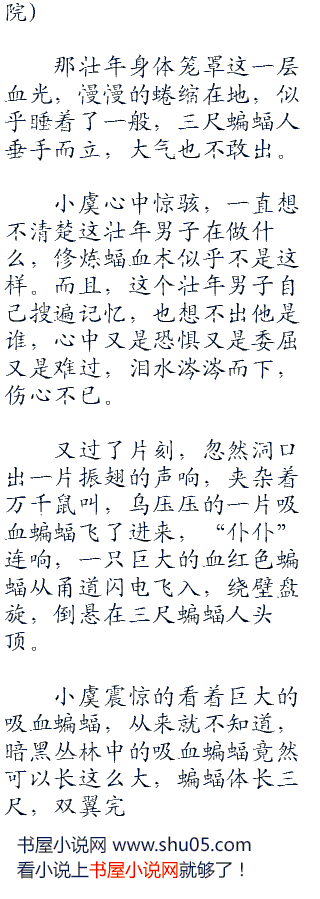 院）
那壮年身体笼罩这一层
血光，慢慢的蜷缩在地，似
乎睡着了一般，三尺蝙蝠人
垂手而立，大气也不敢出。
小虞心中惊骇，一直想
不清楚这壮年男子在做什
么，修炼蝠血术似乎不是这
样。而且，这个壮年男子自
己搜遍记忆，也想不出他是
谁，心中又是恐惧又是委屈
又是难过，泪水涔涔而下，
伤心不已。
又过了片刻，忽然洞口
出一片振翅的声响，夹杂着
万千鼠叫，乌压压的一片吸
血蝙蝠飞了进来，“仆仆”
连响，一只巨大的血红色蝙
蝠从甬道闪电飞入，绕壁盘
旋，倒悬在三尺蝙蝠人头
顶。
小虞震惊的看着巨大的
吸血蝙蝠，从来就不知道，
暗黑丛林中的吸血蝙蝠竟然
可以长这么大，蝙蝠体长三
尺，双翼完
书屋小说网 www.shu05.com
看小说上书屋小说网就够了！